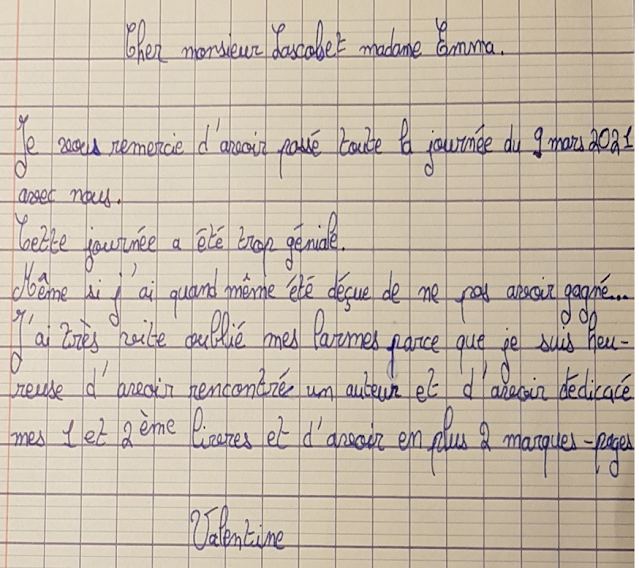 Cher monsieur Lascobet madame Emma.
Je vous remercie d'avoir passé toute la journée du 9 mars 2021
avec nous.
Cette journée a été trop géniale.
Même si j'ai quand même été déçue de ne pas avoir gagné...
J'ai très vite oublié mes larmes parce que je suis heu-
reuse d'avoir rencontré un auteur et d'avoir dédicacé
mes 1 et 2ème livres et d'avoir en plus 2 marques-pages
Valentine